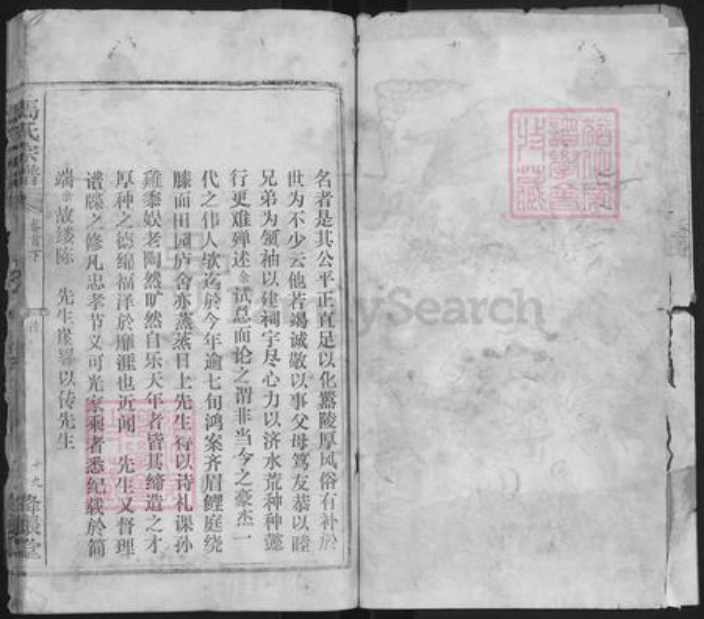 名者是其公平正直足以化嚣陵厚风俗有补於
世为不少云他若竭诚敬以事父母笃友恭以睦
兄弟为领袖以建祠宇尽心力以济水荒种种懿
行更难殚述余试总而论之谓非当今之豪杰一
代之伟人欤迄於今年逾七旬鸿案齐眉鲤庭绕
膝面田园庐舍亦蒸蒸日上先生得以诗礼课孙
鸡黍娱老陶然旷然自乐天年者皆其缔造之才
厚种之德绵福泽於靡涯也近闻 先生又督理
谱牒之修凡忠孝节义可光家乘者悉纪载於简
端余故缕陈 先生崖略以传先生
馬氏宗谱
卷首下
十九
绛帐堂
FamilySearch